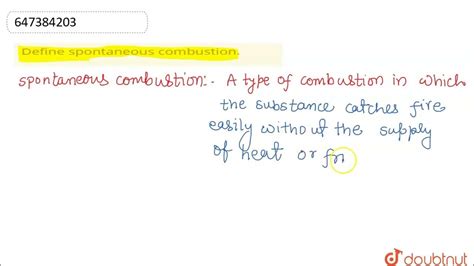 647384203
Define spontaneous combustion.
spontaneous combustion:- A type of combustion in which
the substance catches fire
easily without the supply
of heat or fri
doubtnut